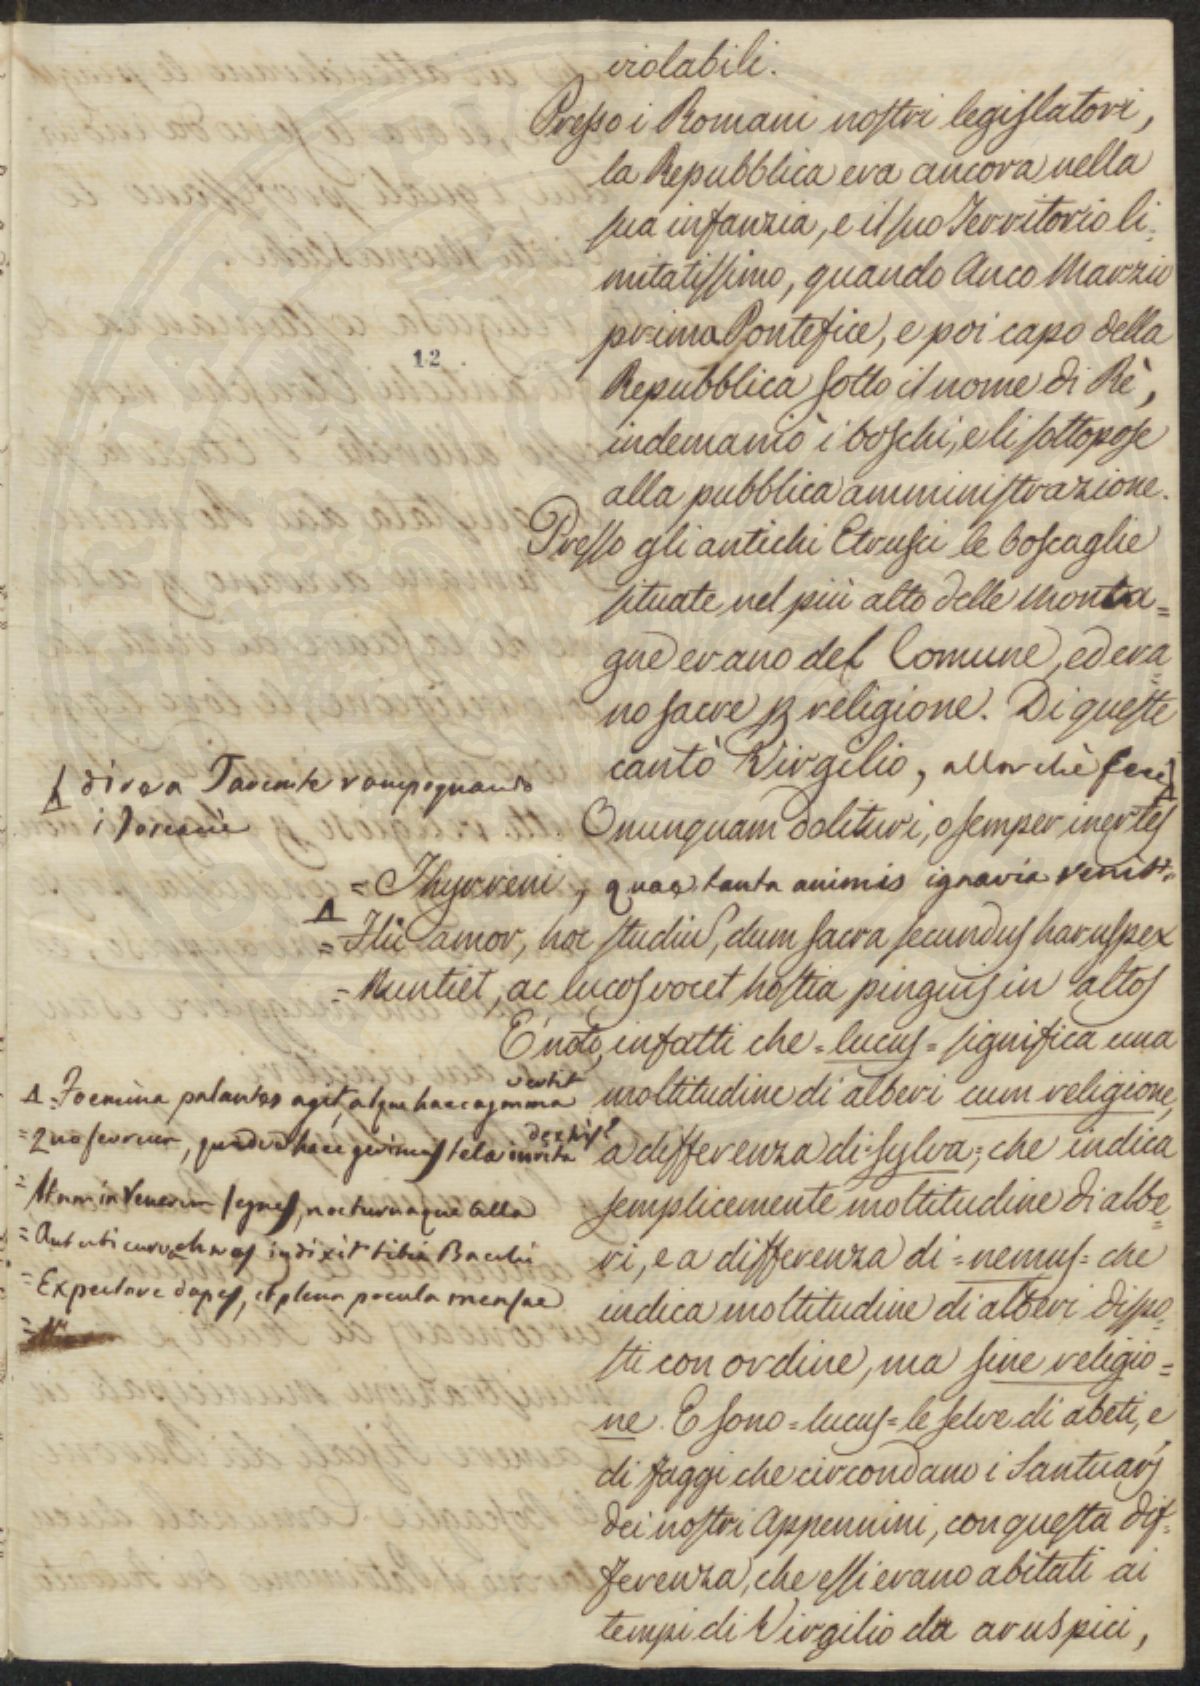 violabili.
Presso i Romani nostri legislatori,
la Repubblica era ancora nella
sua infanzia, e il suo Territorio li=
mitatissimo, quando Anco Marzio
primo Pontefice, e poi capo della
12.
Repubblica sotto il nome di Rè,
indemaniò i boschi, e li sottopose
alla pubblica amministrazione.
Presso gli antichi Etrusci le boscaglie
situate nel più alto delle monta=
gne erano del Comune, ed era=
no sacre p religione. Di queste
cantò Virgilio, allorchè fece
dire a Tarconte rampognando
i Toscani
O nunquam dolituri, o semper inertes
= Thyrreni, quae tanta animis ignavia venit.
= Hic amor, hoc studiu, dum sacra secundus haruspex
= Nuntiet, ac lucos vocet hostia pinguis in altos
È noto, infatti che = lucus = significa una
moltitudine di alberi cum religione,
a differenza di = sylva =, che indica
semplicemente moltitudine di albe=
ri, e a differenza di = nemus = che
indica moltitudine di alberi dispo=
sti con ordine, ma sine religio=
ne. E sono = lucus = le selve di abeti, e
di faggi che circondano i Santuarj
dei nostri Appennini, con questa dif=
ferenza, che essi erano abitati ai
tempi di Virgilio da aruspici,
Δ = Foemina palantes agit, atque haec agmina
vertit
= Quo ferrum, quidve haec gerimus tela
dextris?
= At non in Venerem segnes, nocturnaque bella
= Aut ubi curva choros indixit tibia Bacchi
= Expectare dapes, et plena pocula mensae